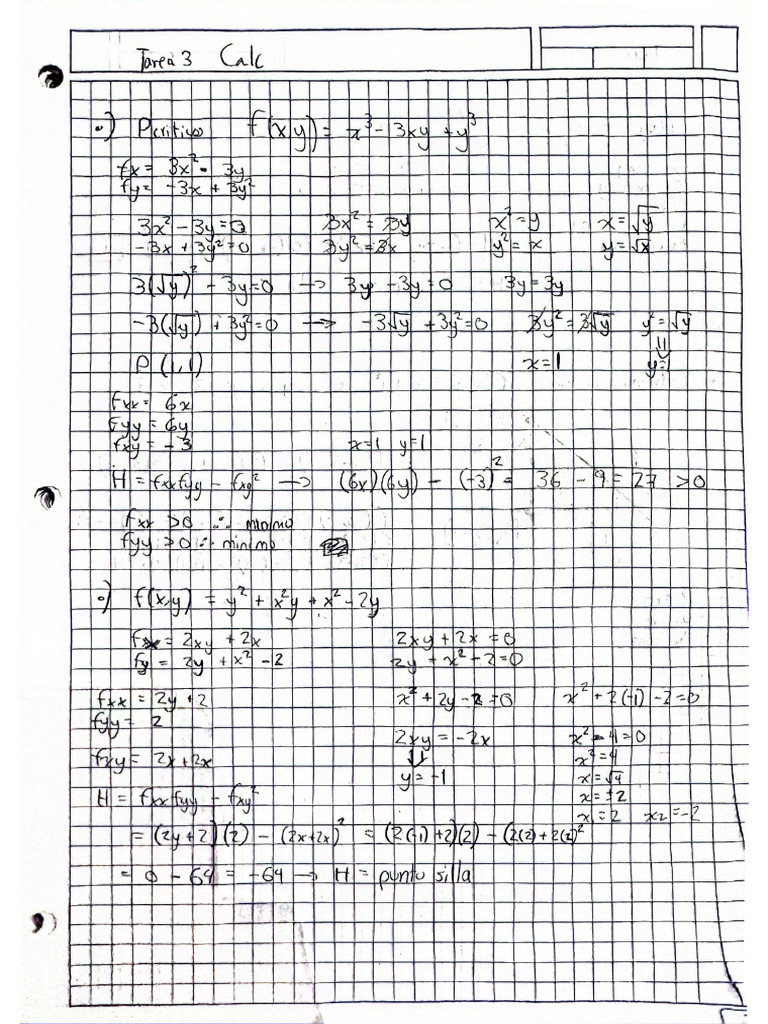 Tarea 3 Calc
•) Pcritico f(x,y) = x³ - 3xy + y³
fx = 3x² - 3y
fy = -3x + 3y²
3x² - 3y = 0 3x² = 3y x² = y x = √y
-3x + 3y² = 0 3y² = 3x y² = x y = √x
3(√y)² - 3y = 0 → 3y - 3y = 0 3y = 3y
-3(√y) + 3y² = 0 → -3√y + 3y² = 0 3y² = 3√y y² = √y
P (1,1) x = 1 y = 1
fxx = 6x
fyy = 6y
fxy = -3 x=1 y=1
H = fxxfyy - fxy² → (6x)(6y) - (-3)² = 36 - 9 = 27 > 0
fxx > 0 ∴ minimo
fyy > 0 ∴ minimo
•) f(x,y) = y² + x²y + x² - 2y
fx = 2xy + 2x 2xy + 2x = 0
fy = 2y + x² - 2 2y + x² - 2 = 0
fxx = 2y + 2 x² + 2y - 2 = 0 x² + 2(-1) - 2 = 0
fyy = 2
2xy = -2x x² - 4 = 0
fxy = 2x + 2x x² = 4
y = -1 x = √4
H = fxxfyy - fxy² x = ±2
x = 2 x2 = -2
= (2y+2)(2) - (2x+2x)² = (2(-1)+2)(2) - (2(2)+2(2)²
= 0 - 64 = -64 → H = punto silla